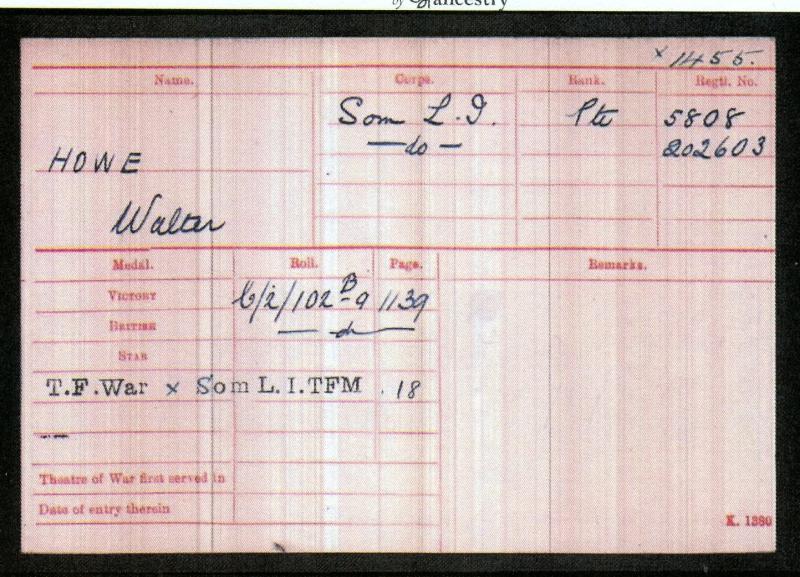 by ancestry
x 1455.
Name. Corps. Rank. Regtl. No.
Som L.I. Pte 5808
— do — 202603
HOWE
Walter
Medal. Roll. Page. Remarks.
VICTORY 6/2/102 B-9 1139
BRITISH — do —
STAR
T.F.War x Som L.I.TFM . 18
Theatre of War first served in
Date of entry therein
K. 1380